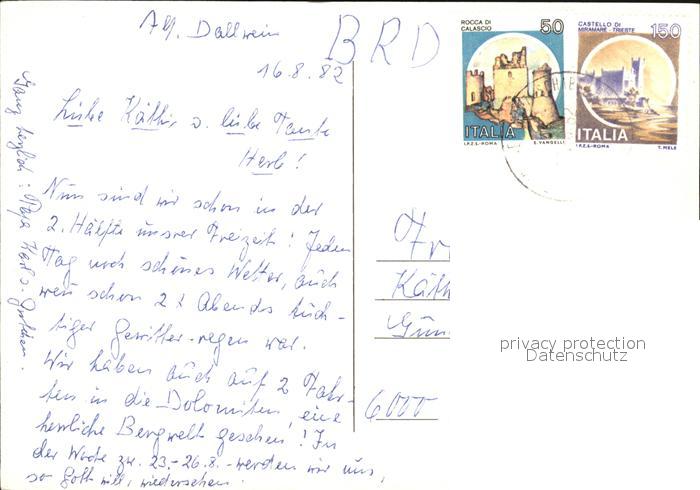 Alf. Dallwein
16.8.82
Liebe Käthi u. liebe Tante
Herb!
Nun sind wir schon in der
2. Hälfte unsrer Freizeit! Jeden
Tag noch schönes Wetter, auch
wen schon 2 x Abends tüch-
tiger Gewitter-regen war.
Wir haben auch auf 2 Fahr-
ten in die Dolomiten, eine
herrliche Bergwelt gesehen! In
der Woche zw. 23.-26.8.-werden wir uns,
so Gott will, wiedersehen.
Ganz herzlich: Papa Herb u.
BRD
ROCCA DI
CALASCIO
50
ITALIA
I.P.Z.S.-ROMA E. VANGELLI
CASTELLO DI
MIRAMARE - TRIESTE
150
ITALIA
I.P.Z.S.-ROMA T. MELE
Fr
Käth
Gün
6000
privacy protection
Datenschutz